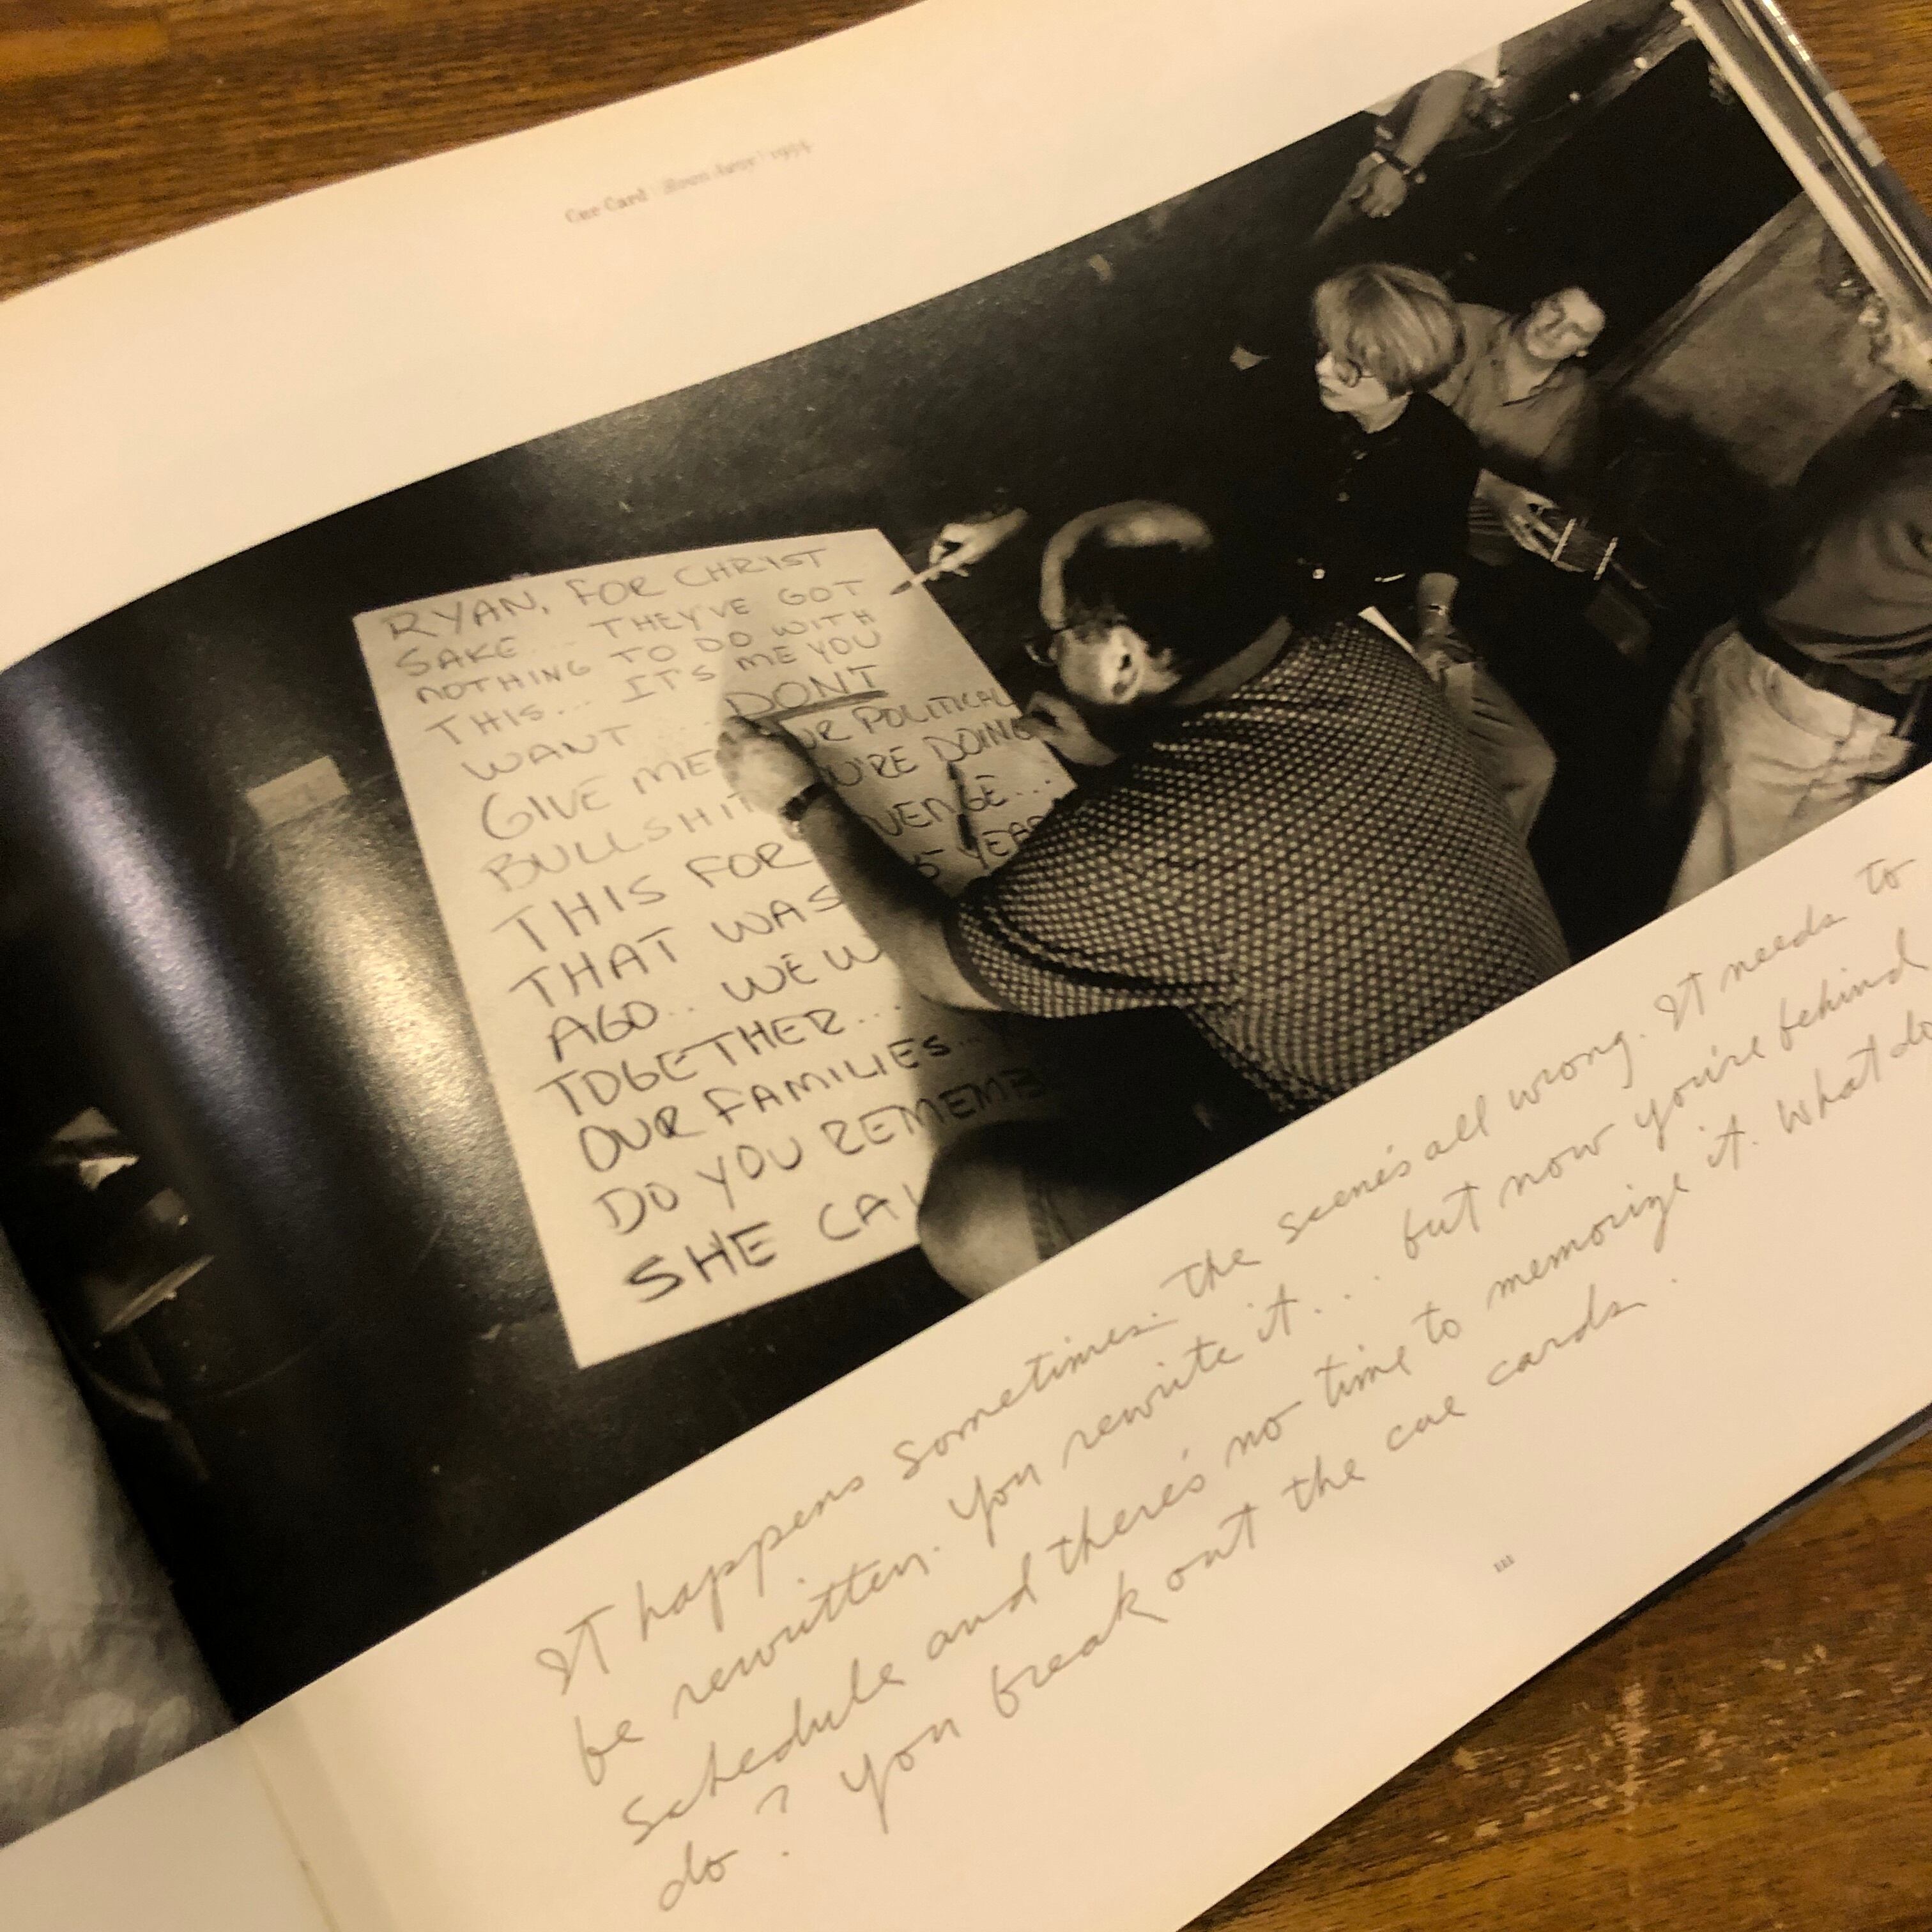 Cue Card / Blown Away / 1993
RYAN, FOR CHRIST
SAKE... THEY'VE GOT
NOTHING TO DO WITH
THIS... IT'S ME YOU
WANT... DON'T
GIVE ME UR POLITICAL
BULLSHIT U'RE DOING
THIS FOR VENGE...
THAT WAS 5 YEAR
AGO.. WE W
TOGETHER...
OUR FAMILIES...
DO YOU REMEMB
SHE CA
It happens sometimes. The scene's all wrong. It needs to
be rewritten. You rewrite it... but now you're behind
schedule and there's no time to memorize it. What do
do? You break out the cue cards.
111